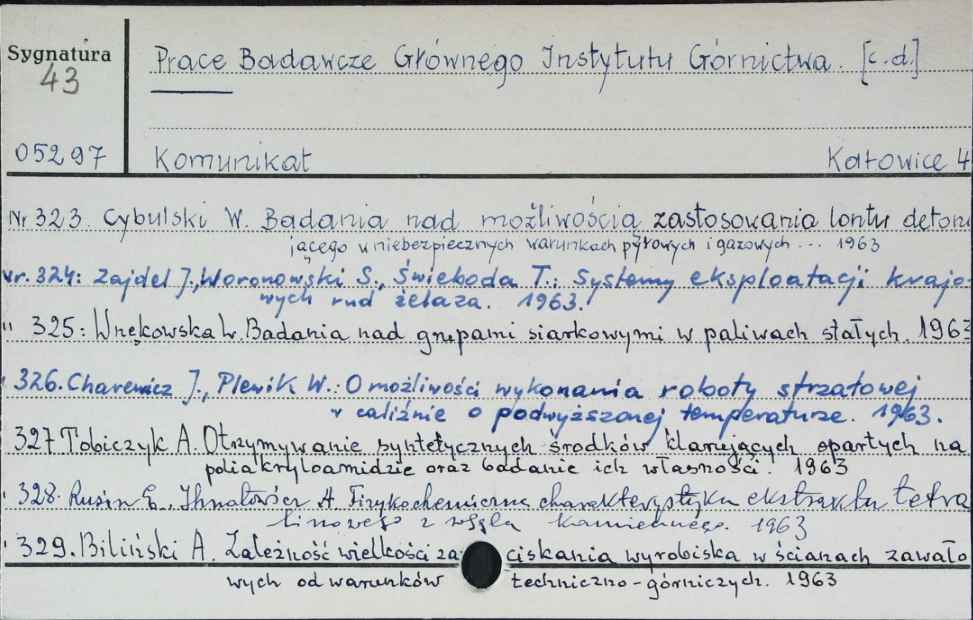 Sygnatura
43
Prace Badawcze Głównego Instytutu Górnictwa. [c.d.]
05297
Komunikat
Katowice 4
Nr 323. Cybulski W. Badania nad możliwością zastosowania lontu detonu
jącego w niebezpiecznych warunkach pyłowych i gazowych... 1963
nr. 324: Zajdel J., Woronowski S., Świeboda T.: Systemy eksploatacji krajo-
wych rud żelaza. 1963.
" 325: Wnękowska L. Badania nad grupami siarkowymi w paliwach stałych. 1963
" 326. Charewicz J., Plewik W.: O możliwości wykonania roboty strzałowej
w caliźnie o podwyższonej temperaturze. 1963.
327 Tobiczyk A. Otrzymywanie syntetycznych środków klarujących opartych na
poliakryloamidzie oraz badanie ich własności. 1963
" 328. Rusin E., Ihnatowicz A. Fizykochemiczna charakterystyka ekstraktu tetra
linowego z węgla kamiennego. 1963
" 329. Biliński A. Zależność wielkości za ciskania wyrobiska w ścianach zawało
wych od warunków techniczno-górniczych. 1963